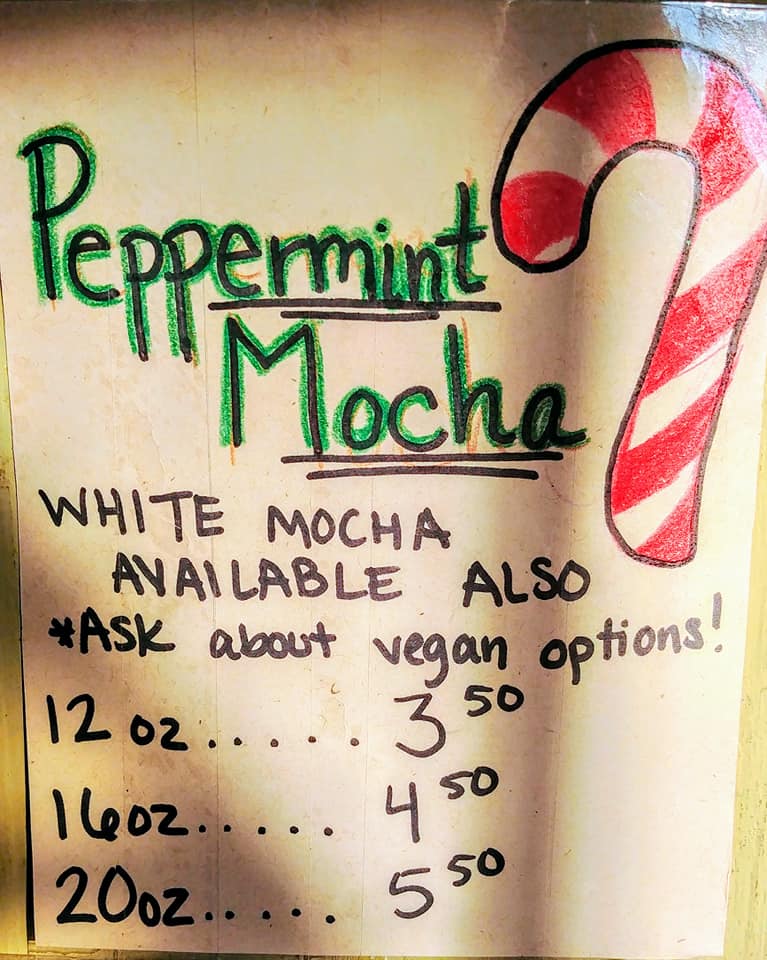 Peppermint
Mocha
WHITE MOCHA
AVAILABLE ALSO
*ASK about vegan options!
12 oz..... 3 50
16oz..... 4 50
20oz..... 5 50